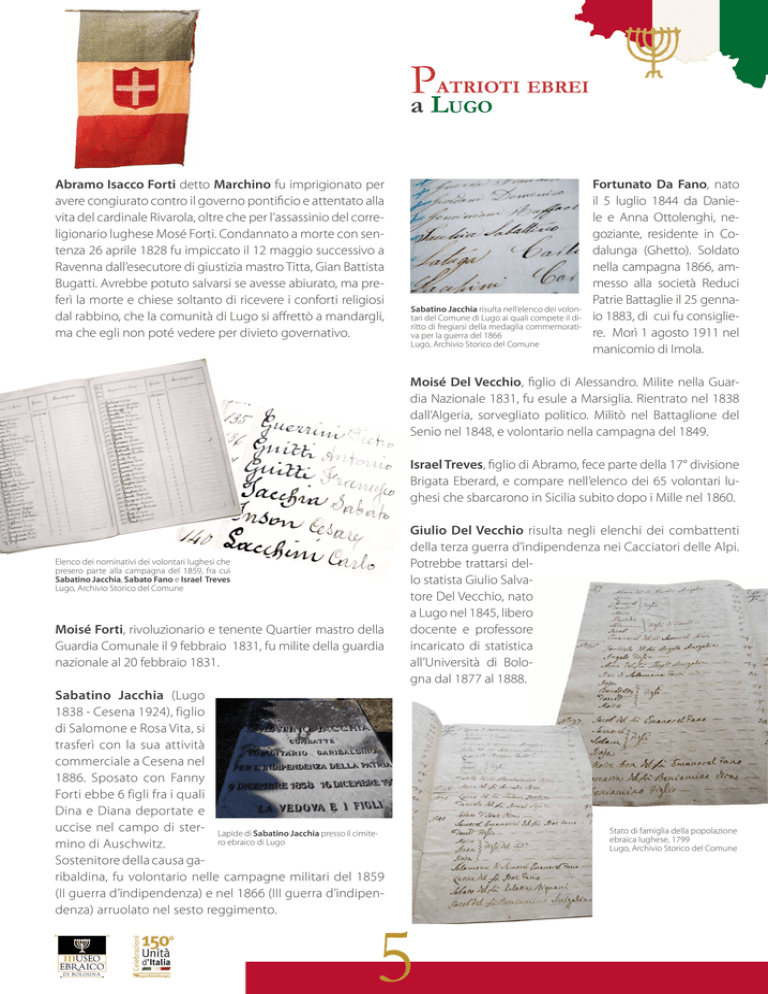 PATRIOTI EBREI
a LUGO
Abramo Isacco Forti detto Marchino fu imprigionato per
avere congiurato contro il governo pontificio e attentato alla
vita del cardinale Rivarola, oltre che per l'assassinio del corre-
ligionario lughese Mosé Forti. Condannato a morte con sen-
tenza 26 aprile 1828 fu impiccato il 12 maggio successivo a
Ravenna dall'esecutore di giustizia mastro Titta, Gian Battista
Bugatti. Avrebbe potuto salvarsi se avesse abiurato, ma pre-
ferì la morte e chiese soltanto di ricevere i conforti religiosi
dal rabbino, che la comunità di Lugo si affrettò a mandargli,
ma che egli non poté vedere per divieto governativo.
135 Guerrini Pietro
136 Guitti Antonio
Guitti Francesco
Jacchia Sabato
Inson Cesare
140 Lacchini Carlo
Elenco dei nominativi dei volontari lughesi che
presero parte alla campagna del 1859, fra cui
Sabatino Jacchia, Sabato Fano e Israel Treves
Lugo, Archivio Storico del Comune
Moisé Forti, rivoluzionario e tenente Quartier mastro della
Guardia Comunale il 9 febbraio 1831, fu milite della guardia
nazionale al 20 febbraio 1831.
Sabatino Jacchia (Lugo
1838 - Cesena 1924), figlio
di Salomone e Rosa Vita, si
trasferì con la sua attività
commerciale a Cesena nel
1886. Sposato con Fanny
Forti ebbe 6 figli fra i quali
Dina e Diana deportate e
uccise nel campo di ster-
mino di Auschwitz.
Sostenitore della causa ga-
ribaldina, fu volontario nelle campagne militari del 1859
(II guerra d'indipendenza) e nel 1866 (III guerra d'indipen-
denza) arruolato nel sesto reggimento.
SABATINO JACCHIA
COMBATTÈ
VOLONTARIO GARIBALDINO
PER L'INDIPENDENZA DELLA PATRIA
9 DICEMBRE 1838 16 DICEMBRE 19
LA VEDOVA E I FIGLI
Lapide di Sabatino Jacchia presso il cimite-
ro ebraico di Lugo
Domenico
Jacchia Sabattino
Carlo
Sabatino Jacchia risulta nell'elenco dei volon-
tari del Comune di Lugo ai quali compete il di-
ritto di fregiarsi della medaglia commemorati-
va per la guerra del 1866
Lugo, Archivio Storico del Comune
Fortunato Da Fano, nato
il 5 luglio 1844 da Danie-
le e Anna Ottolenghi, ne-
goziante, residente in Co-
dalunga (Ghetto). Soldato
nella campagna 1866, am-
messo alla società Reduci
Patrie Battaglie il 25 genna-
io 1883, di cui fu consiglie-
re. Morì 1 agosto 1911 nel
manicomio di Imola.
Moisé Del Vecchio, figlio di Alessandro. Milite nella Guar-
dia Nazionale 1831, fu esule a Marsiglia. Rientrato nel 1838
dall'Algeria, sorvegliato politico. Militò nel Battaglione del
Senio nel 1848, e volontario nella campagna del 1849.
Israel Treves, figlio di Abramo, fece parte della 17° divisione
Brigata Eberard, e compare nell'elenco dei 65 volontari lu-
ghesi che sbarcarono in Sicilia subito dopo i Mille nel 1860.
Giulio Del Vecchio risulta negli elenchi dei combattenti
della terza guerra d'indipendenza nei Cacciatori delle Alpi.
Potrebbe trattarsi del-
lo statista Giulio Salva-
tore Del Vecchio, nato
a Lugo nel 1845, libero
docente e professore
incaricato di statistica
all'Università di Bolo-
gna dal 1877 al 1888.
Stato di famiglia della popolazione
ebraica lughese, 1799
Lugo, Archivio Storico del Comune
MUSEO
EBRAICO
DI BOLOGNA
Celebrazioni
150°
Unità
d'Italia
5